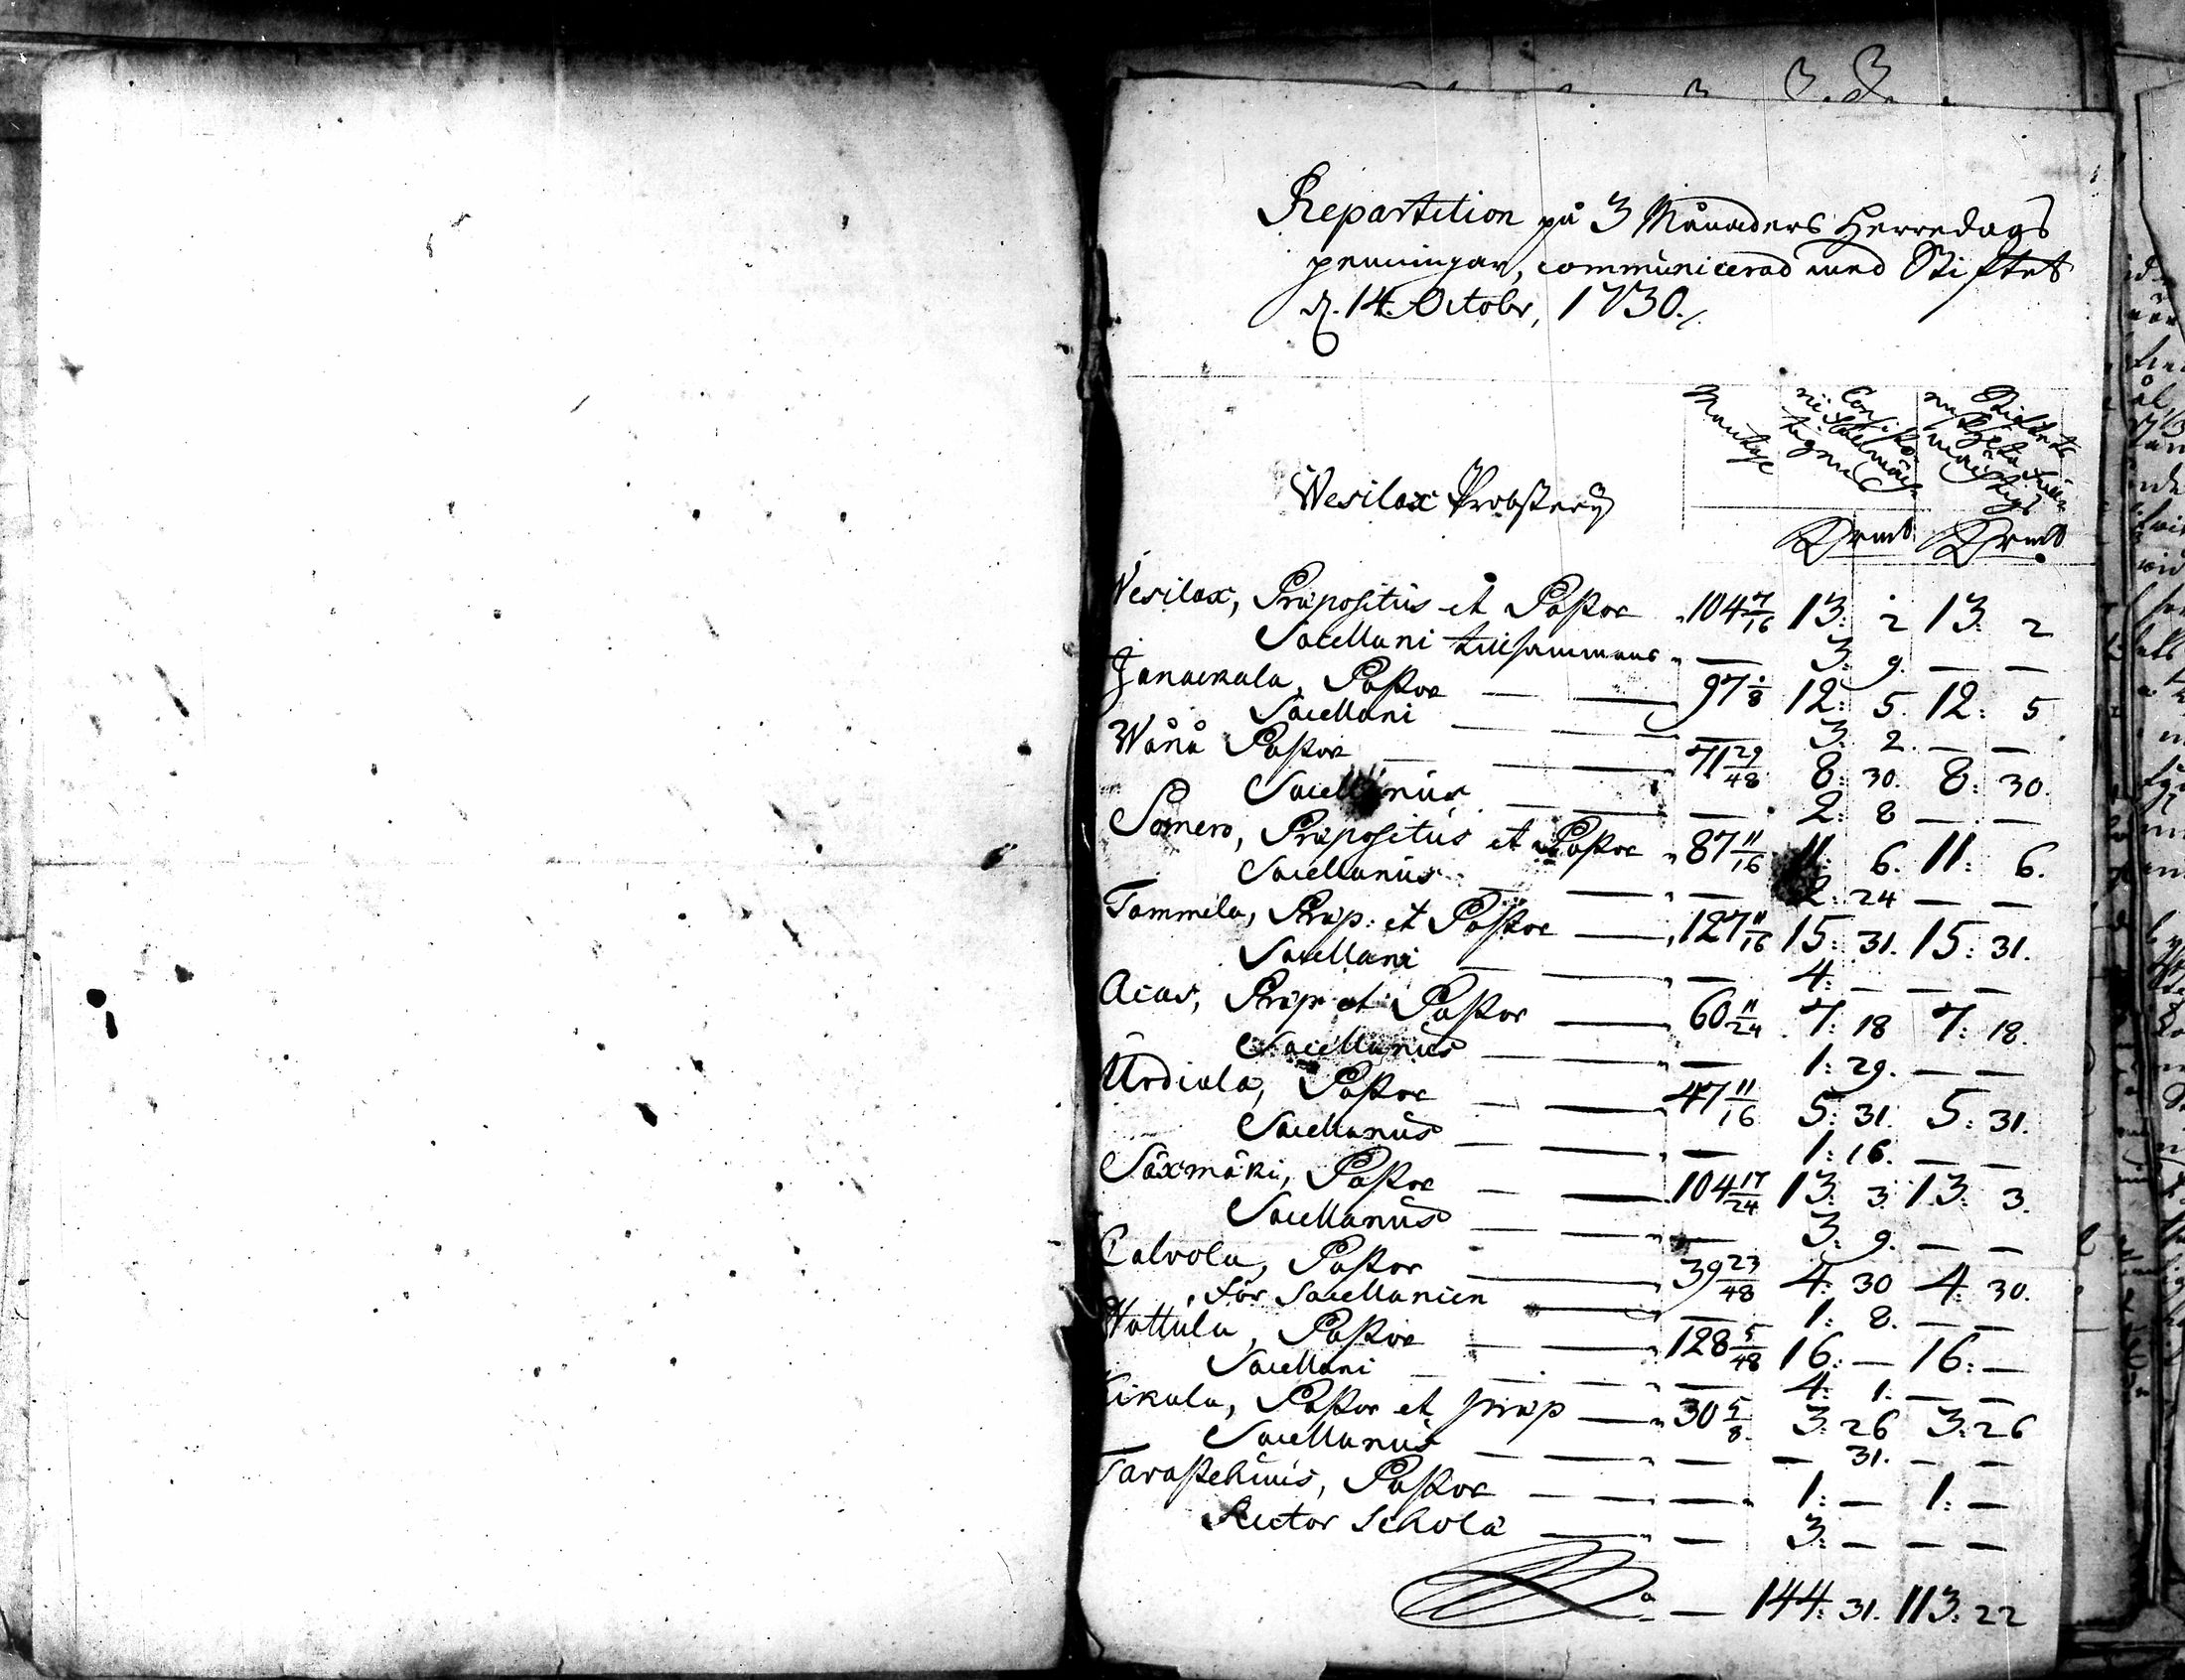 Repartition på 3 Månaders Herredags
penningar, communicerad med Stiftet
d. 14. Octobr, 1730./.
Mantahl
Consisto-
rii
Stiftets
Wesilax Probsterij
Dr smt Dr smt
Wesilax, Præpositus et Pastor 104 7/16 13: 2 13: 2
Sacellani tillsammans — 3: 9. — —
Janackala, Pastor — — 97 1/8 12: 5. 12: 5
Sacellani — — — 3: 2. — —
Wånå Pastor — — 71 29/48 8: 30. 8: 30.
Sacellanus — — — 2: 8 — —
Somero, Præpositus et Pastor 87 11/16 11: 6. 11: 6.
Sacellanus — — — 2: 24 — —
Tammela, Præp: et Pastor — 127 11/16 15: 31. 15: 31.
Sacellani — — — 4: — — —
Acas, Præp et Pastor — 60 11/24 7: 18 7: 18.
Sacellanus — — — 1: 29. — —
Urdiala, Pastor — — 47 11/16 5: 31. 5: 31.
Sacellanus — — — 1: 16. — —
Säxmäki, Pastor — — 104 17/24 13: 3. 13: 3.
Sacellanus — — — 3: 9. — —
Calvola, Pastor — 39 23/48 4: 30 4: 30.
För Sacellanien — — 1: 8. — —
Wattula, Pastor — — 128 5/48 16: — 16: —
Sacellani — — — 4: 1. — —
Kikala, Pastor et præp — 30 5/8 3: 26 3: 26
Sacellanus — — — — 31. — —
Tavastehuus, Pastor — — — 1: — 1: —
Rector Scholæ — — 3: — — —
— 144: 31. 113: 22